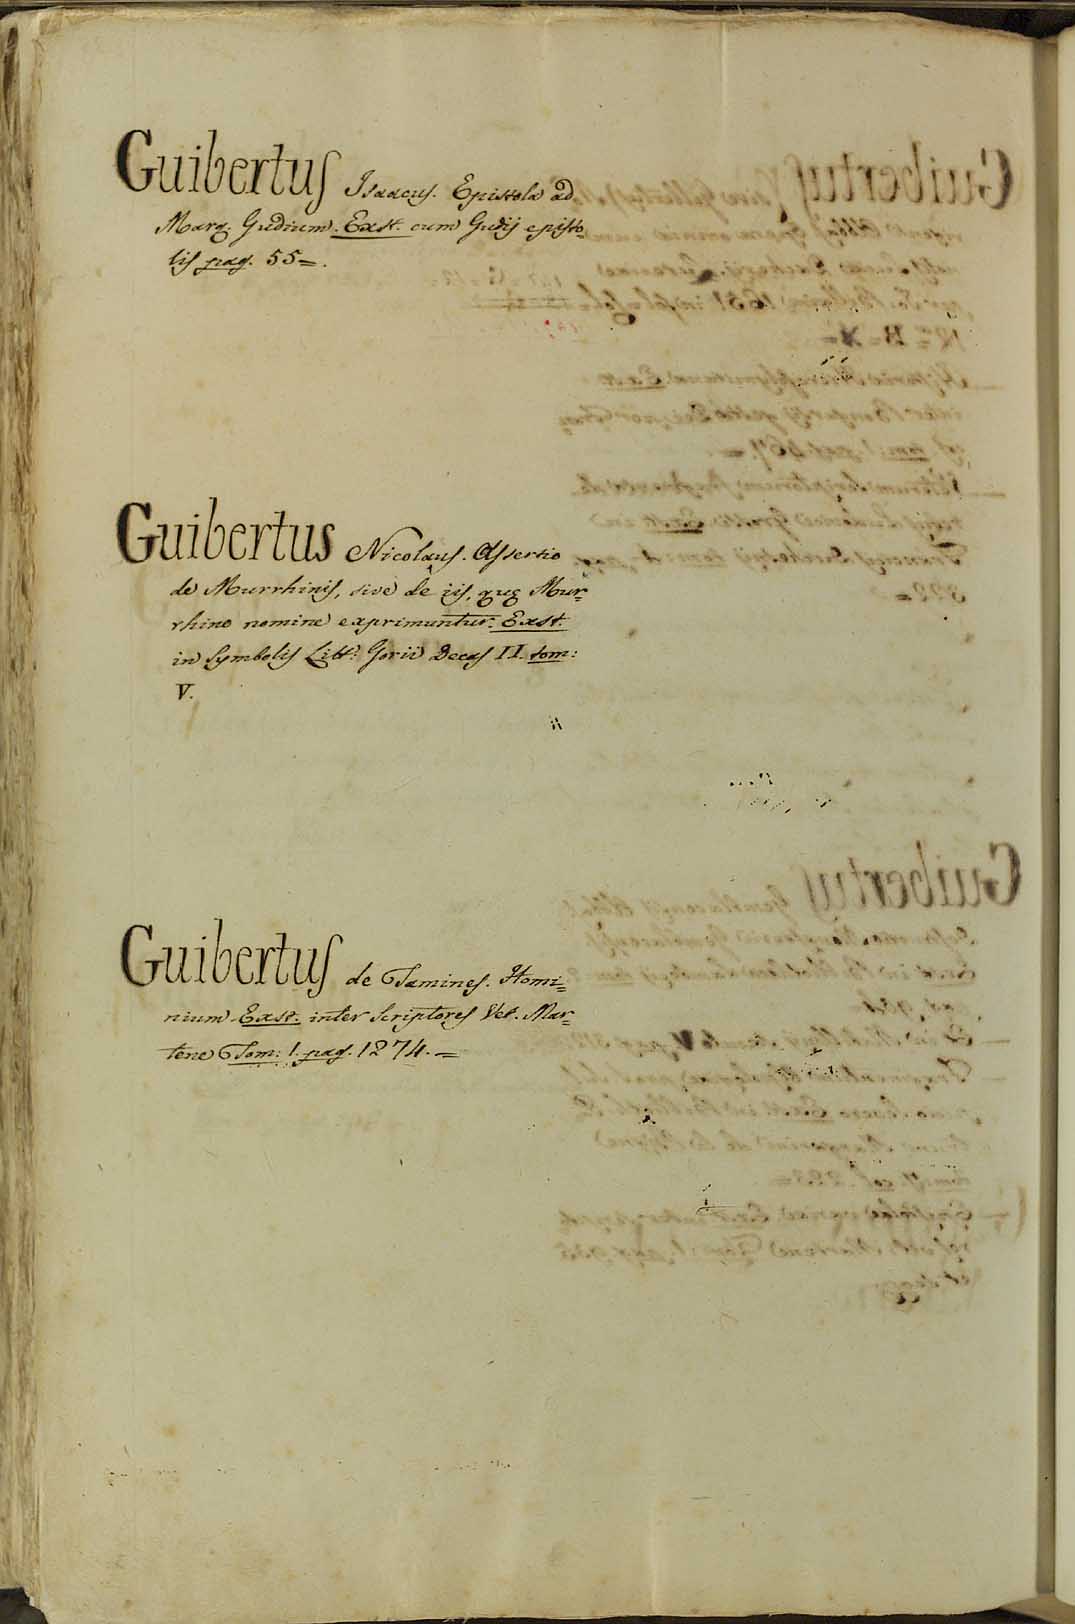 Guibertus Isaacus. Epistola ad
Marq. Gudium. Exst. cum Gudij episto=
lis pag. 55=.
Guibertus Nicolaus. Assertio
de Murrhinis, sive de iis, quę Mur=
rhino nomine exprimuntur. Exst.
in Symbolis Litt. Gorii Decas II. tom:
V.
Guibertus de Tamines. Homi=
nium Exst. inter Scriptores Vet. Mar=
tene Tom: 1. pag. 1274.=